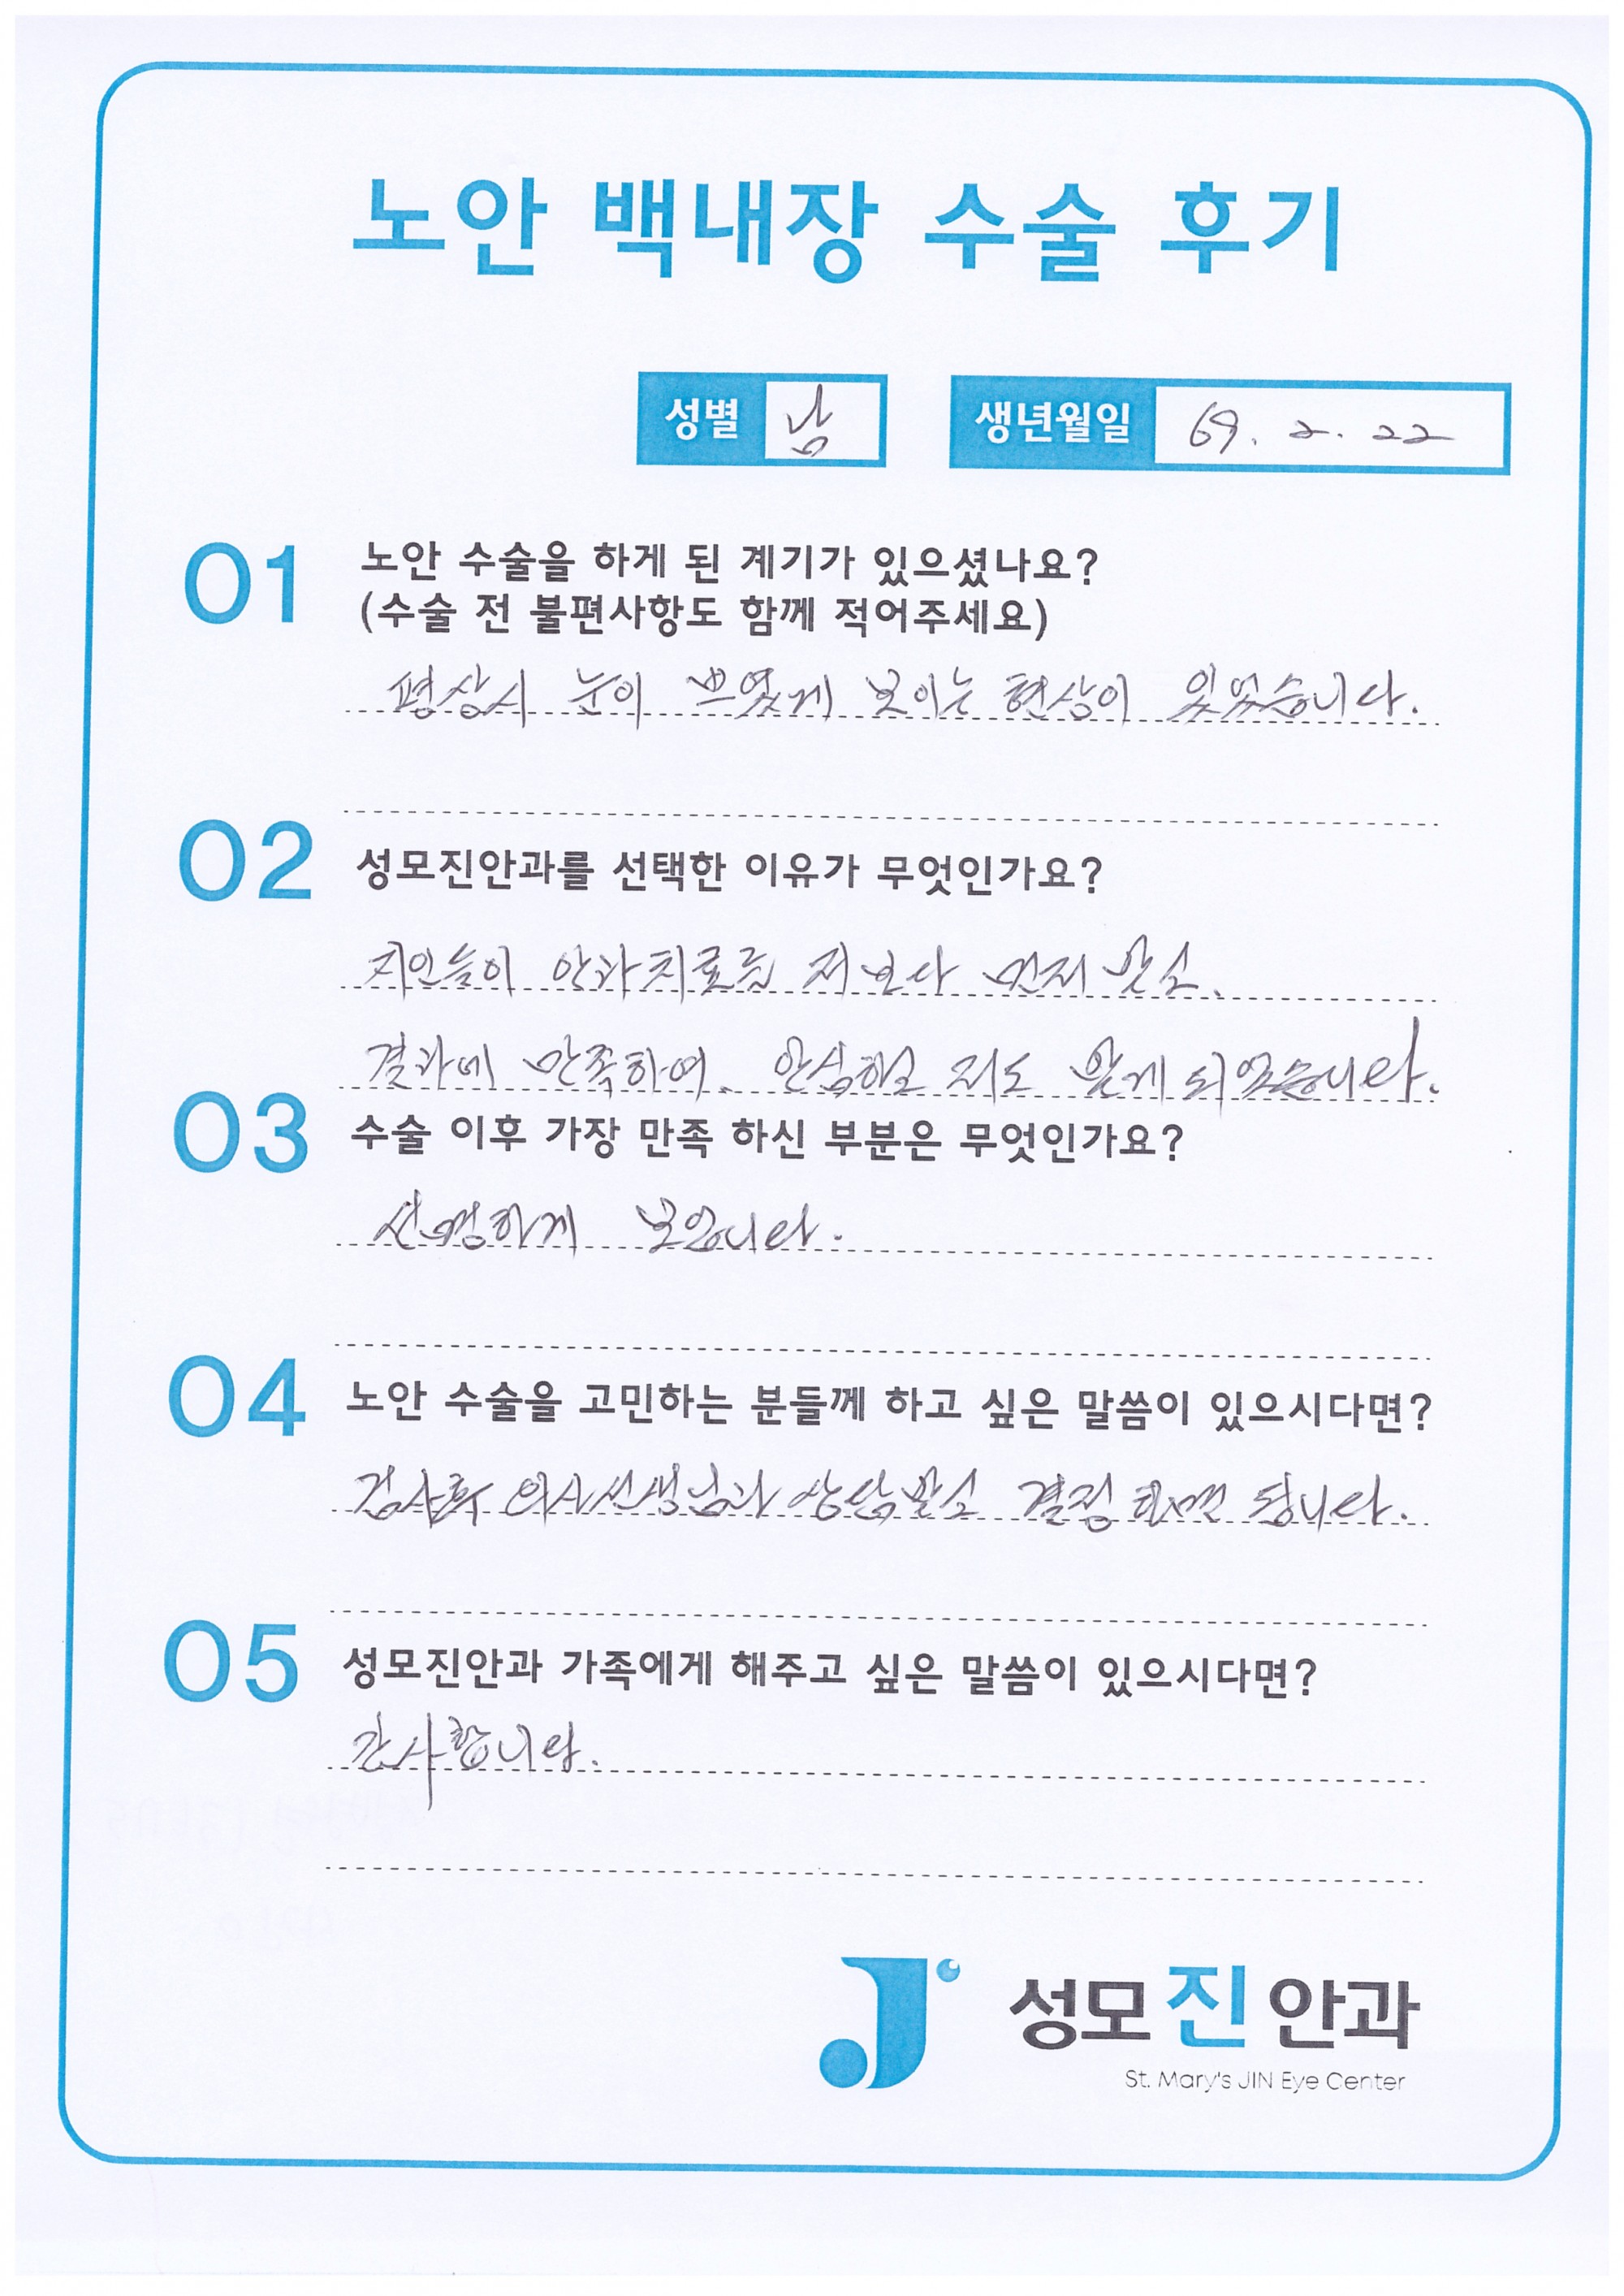 노안 백내장 수술 후기
성별 남 생년월일 69. 2. 22
01 노안 수술을 하게 된 계기가 있으셨나요?
(수술 전 불편사항도 함께 적어주세요)
평상시 눈이 쁘옇게 보이는 현상이 있었습니다.
02 성모진안과를 선택한 이유가 무엇인가요?
지인들이 안과치료를 저보다 먼저 받고.
결과에 만족하여. 안심하고 저도 받게 되었습니다.
03 수술 이후 가장 만족 하신 부분은 무엇인가요?
선명하게 보입니다.
04 노안 수술을 고민하는 분들께 하고 싶은 말씀이 있으시다면?
검사후 의사선생님과 상담받고 결정하면 됩니다.
05 성모진안과 가족에게 해주고 싶은 말씀이 있으시다면?
감사합니다.
성모진안과
St. Mary's JIN Eye Center